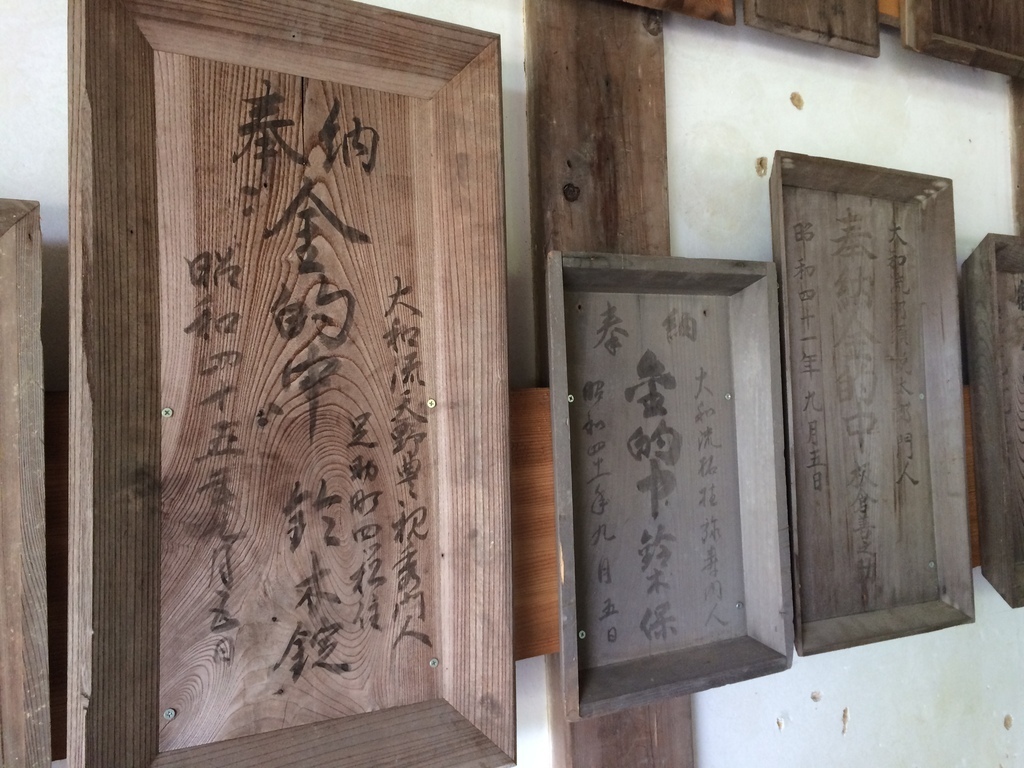 奉納
大和流天野典視秀門人
足助町四ツ松住
金的中 鈴木錠
昭和四十五年九月五日
奉納
大和流
弥寿門人
金的中 鈴木保
昭和四十一年九月五日
大和流
太郎門人
奉納金的中
昭和四十一年九月五日